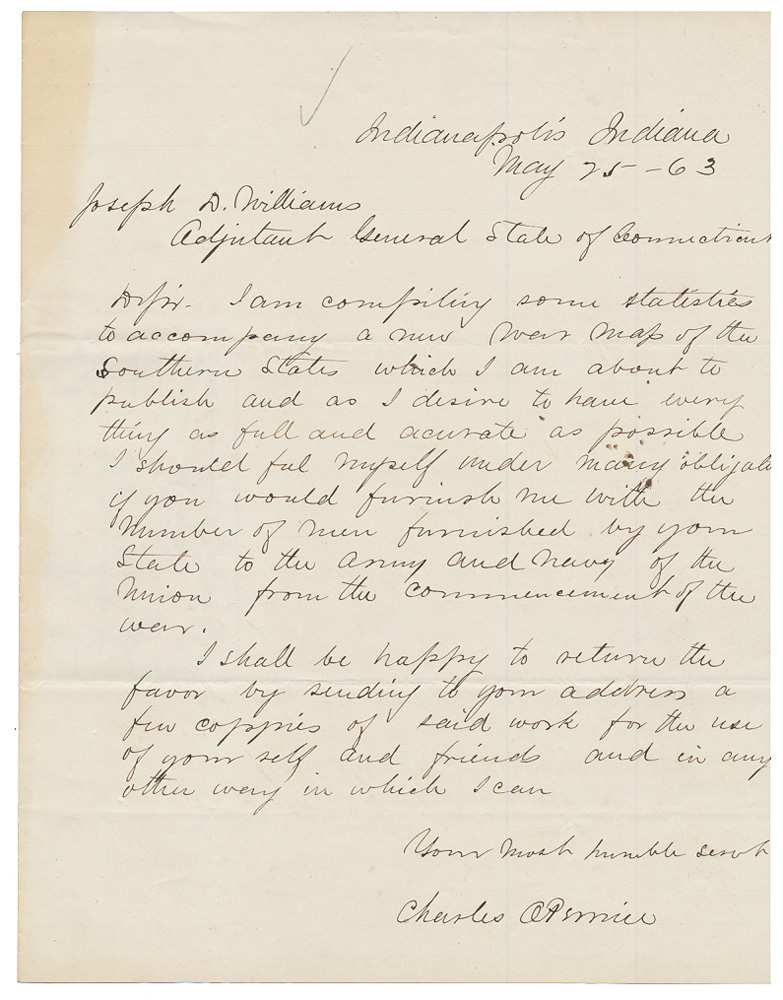 Indianapolis Indiana
May 25 - 63
Joseph D. Williams
Adjutant General State of Connecticut
D Sir. I am compiling some statistics
to accompany a new War Map of the
Southern States which I am about to
publish and as I desire to have every
thing as full and acurate as possible
I should feel myself under many obligati
if you would furnish me with the
number of men furnished by your
State to the Army and Navy of the
Union from the commencement of the
war.
I shall be happy to return the
favor by sending to your address a
few coppies of said work for the use
of your self and friends and in any
other way in which I can
Your most humble servt
Charles O Perrine